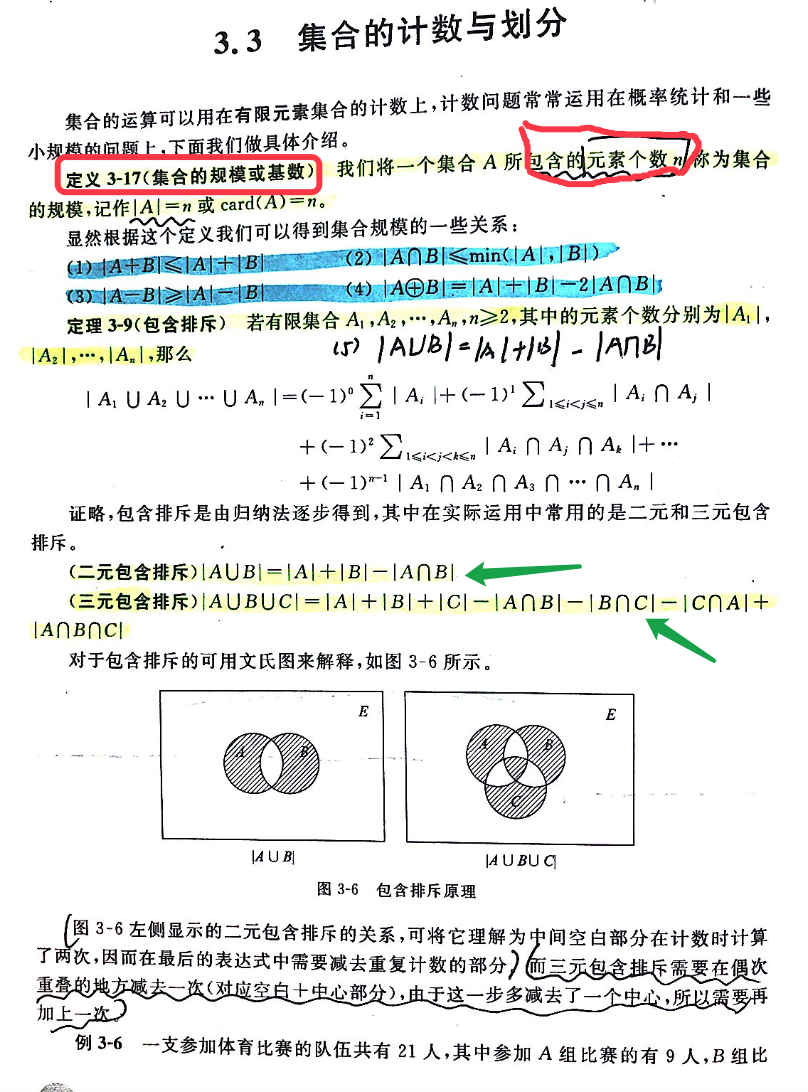 3.3 集合的计数与划分
集合的运算可以用在有限元素集合的计数上,计数问题常常运用在概率统计和一些
小规模的问题上,下面我们做具体介绍。
定义 3-17(集合的规模或基数) 我们将一个集合 A 所包含的元素个数 n 称为集合
的规模,记作|A|=n 或 card(A)=n。
显然根据这个定义我们可以得到集合规模的一些关系:
(1) |A+B|≤|A|+|B| (2) |A∩B|≤min(|A|,|B|)
(3) |A-B|≥|A|-|B| (4) |A⊕B|=|A|+|B|-2|A∩B|
定理 3-9(包含排斥) 若有限集合 A₁,A₂,⋯,Aₙ,n≥2,其中的元素个数分别为|A₁|,
|A₂|,⋯,|Aₙ|,那么
(5) |A∪B|=|A|+|B|-|A∩B|
|A₁∪A₂∪⋯∪Aₙ|=(-1)⁰∑ⁿᵢ₌₁|Aᵢ|+(-1)¹∑₁≤i<j≤n|Aᵢ∩Aⱼ|
+(-1)²∑₁≤i<j<k≤n|Aᵢ∩Aⱼ∩Aₖ|+⋯
+(-1)ⁿ⁻¹|A₁∩A₂∩A₃∩⋯∩Aₙ|
证略,包含排斥是由归纳法逐步得到,其中在实际运用中常用的是二元和三元包含
排斥。
(二元包含排斥)|A∪B|=|A|+|B|-|A∩B|
(三元包含排斥)|A∪B∪C|=|A|+|B|+|C|-|A∩B|-|B∩C|-|C∩A|+
|A∩B∩C|
对于包含排斥的可用文氏图来解释,如图 3-6 所示。
E
A B
E
A B
C
|A∪B|
|A∪B∪C|
图 3-6 包含排斥原理
图 3-6 左侧显示的二元包含排斥的关系,可将它理解为中间空白部分在计数时计算
了两次,因而在最后的表达式中需要减去重复计数的部分,而三元包含排斥需要在偶次
重叠的地方减去一次(对应空白+中心部分),由于这一步多减去了一个中心,所以需要再
加上一次。
例 3-6 一支参加体育比赛的队伍共有 21 人,其中参加 A 组比赛的有 9 人,B 组比